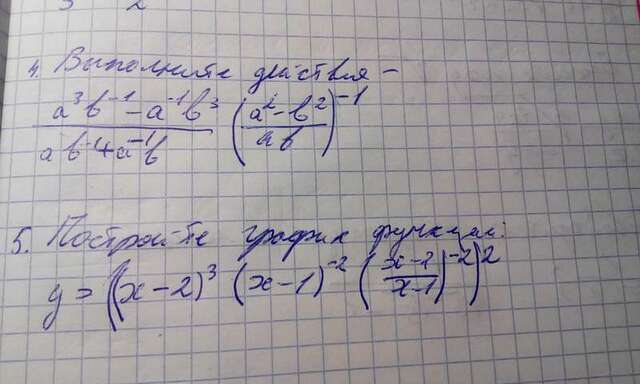 3 2
4. Выполните действия –
a³b⁻¹ – a⁻¹b³ / ab⁻¹ + a⁻¹b (a² – b² / ab)⁻¹
5. Постройте график функции:
y = ((x – 2)³ (x – 1)⁻² (x – 2 / x – 1)⁻²)²